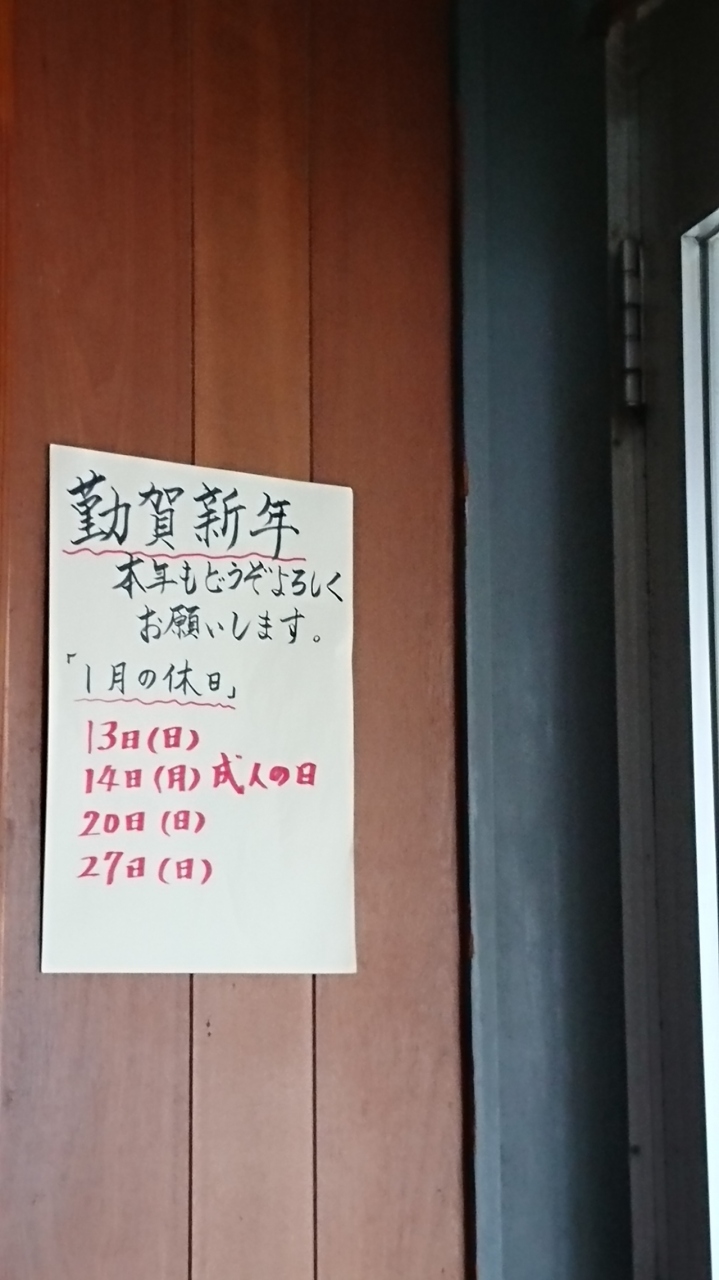 勤賀新年
本年もどうぞよろしく
お願いします。
「1月の休日」
13日(日)
14日(月)成人の日
20日(日)
27日(日)